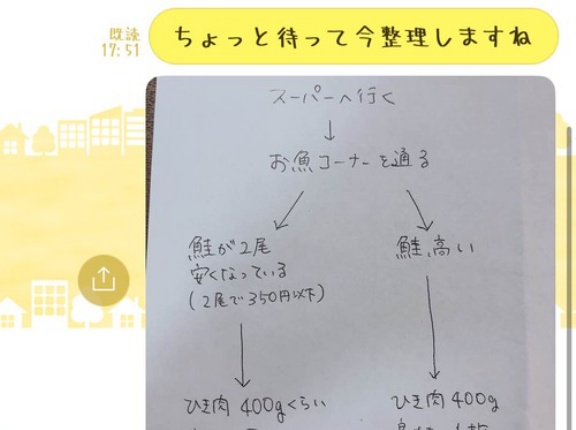 既読
17:51
ちょっと待って今整理しますね
スーパーへ行く
↓
お魚コーナーを通る
鮭が2尾
安くなっている
(2尾で350円以下)
鮭、高い
ひき肉 400gくらい
ひき肉 400g